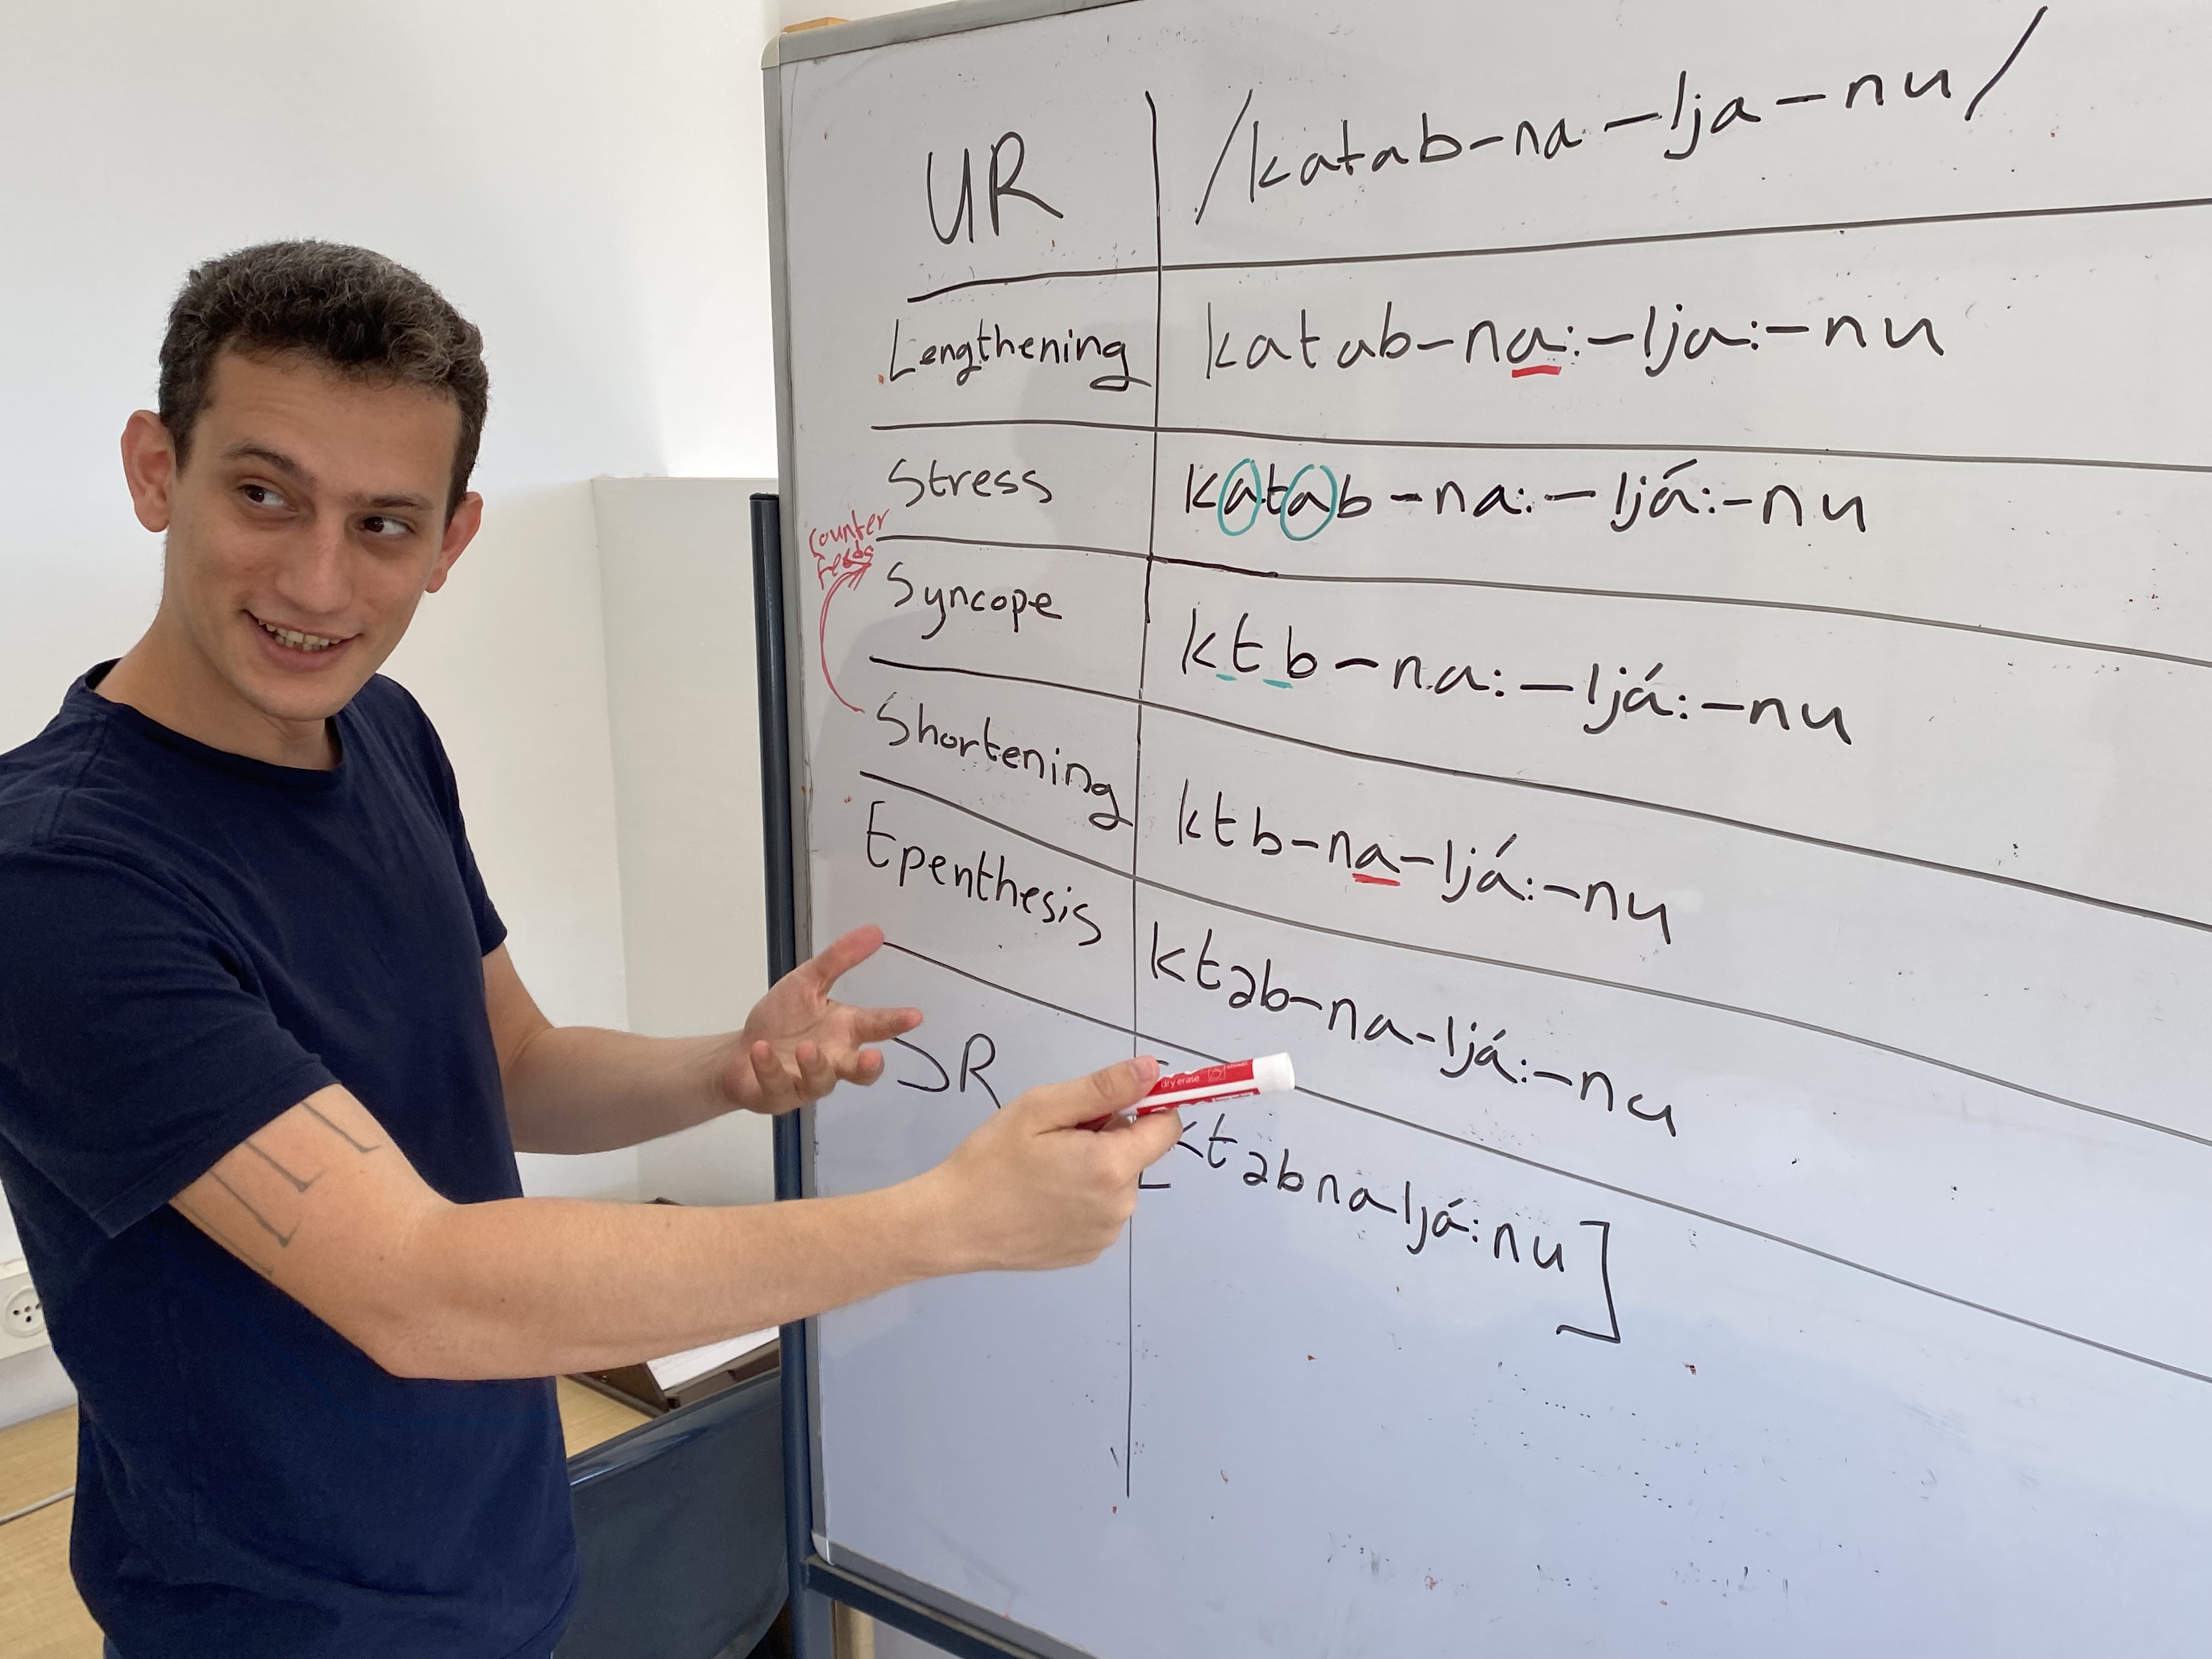 UR /katab-na-lja-nu/
Lengthening katab-na:-lja:-nu
Stress katab-na:-ljá:-nu
counter
feeds
Syncope ktb-na:-ljá:-nu
Shortening ktb-na-ljá:-nu
Epenthesis ktəb-na-ljá:-nu
SR [ktəbna-ljá:nu]
dry erase